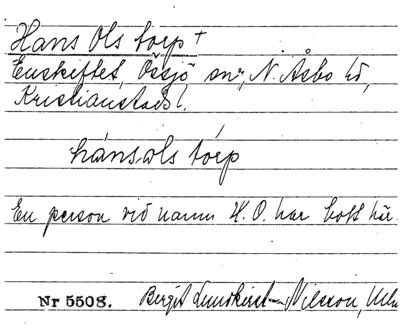 Hans Ols torp +
Enskiftet, Össjö sn, N. Åsbo hd,
Kristianstads l.
hánsols tórp
En person vid namn H. O. har bott här.
Nr 5508. Birgit Lundkvist-Nilsson,